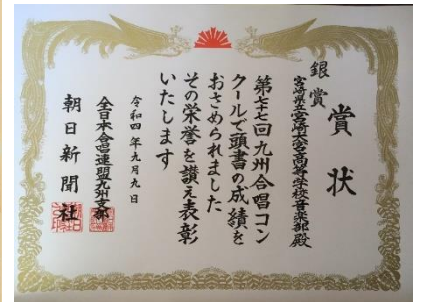 賞状
銀賞
宮崎県立宮崎大宮高等学校音楽部殿
第七十七回九州合唱コン
クールで頭書の成績を
おさめられました
その栄誉を讃え表彰
いたします
令和四年九月九日
全日本合唱連盟九州支部
朝日新聞社